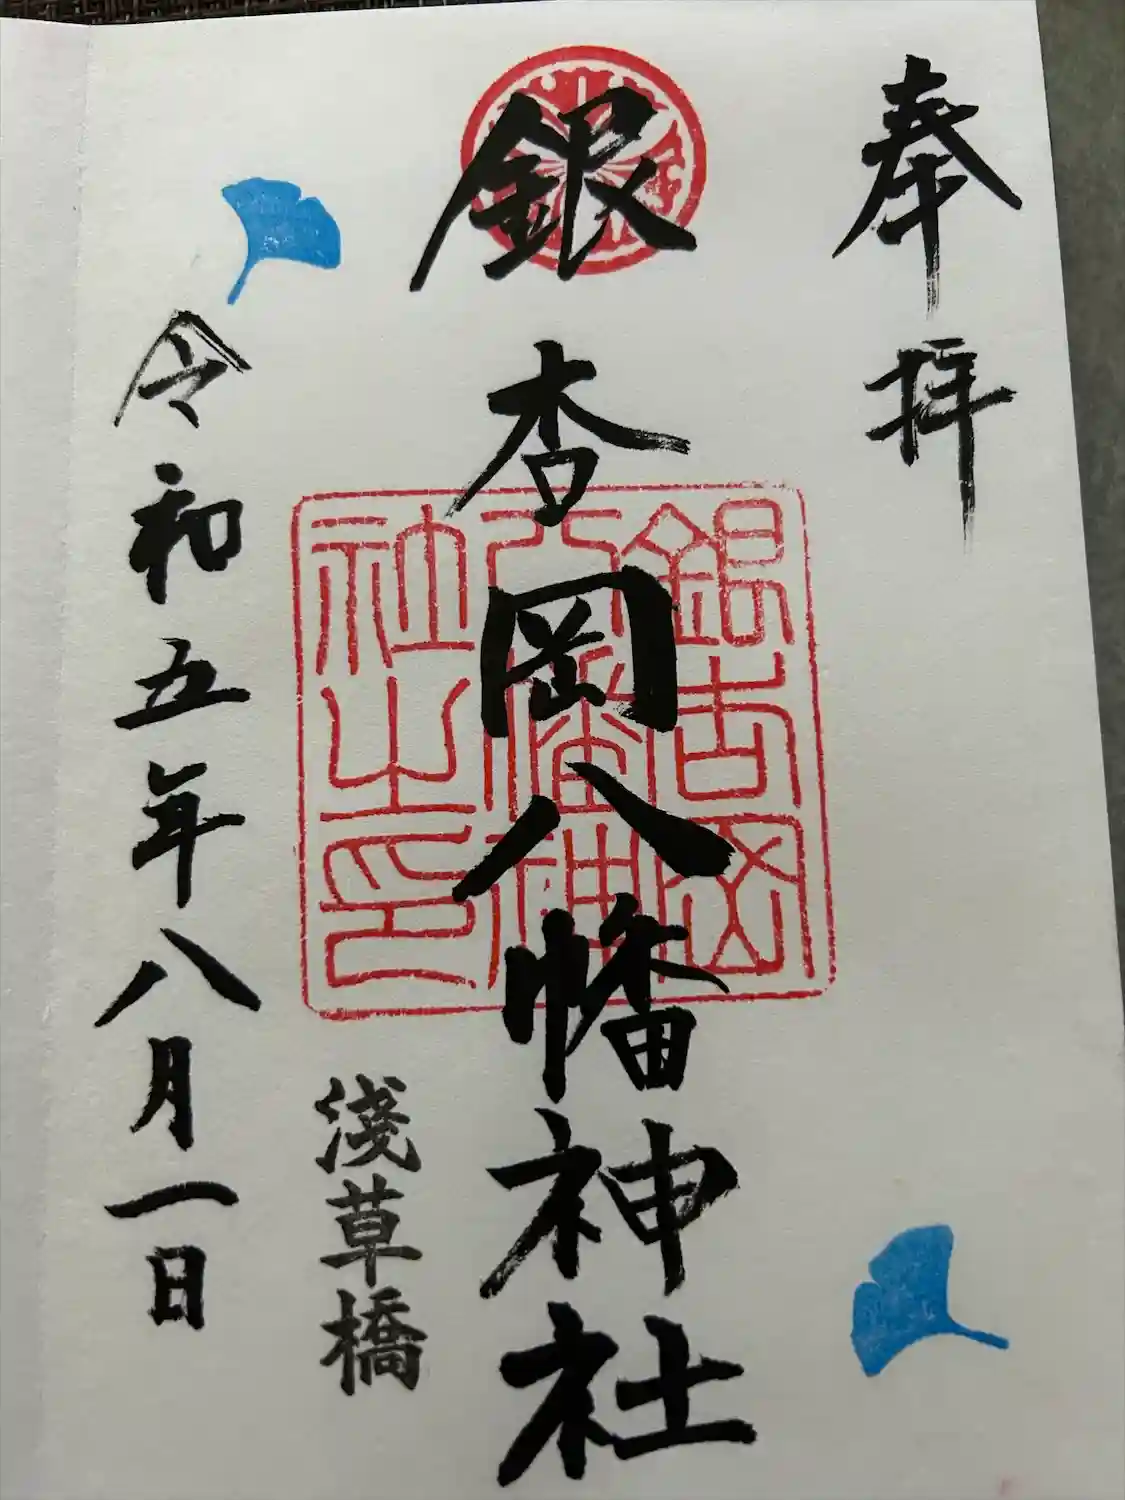 奉拝
銀杏岡八幡神社
銀杏岡
八幡神
社之印
淺草橋
令和五年八月一日